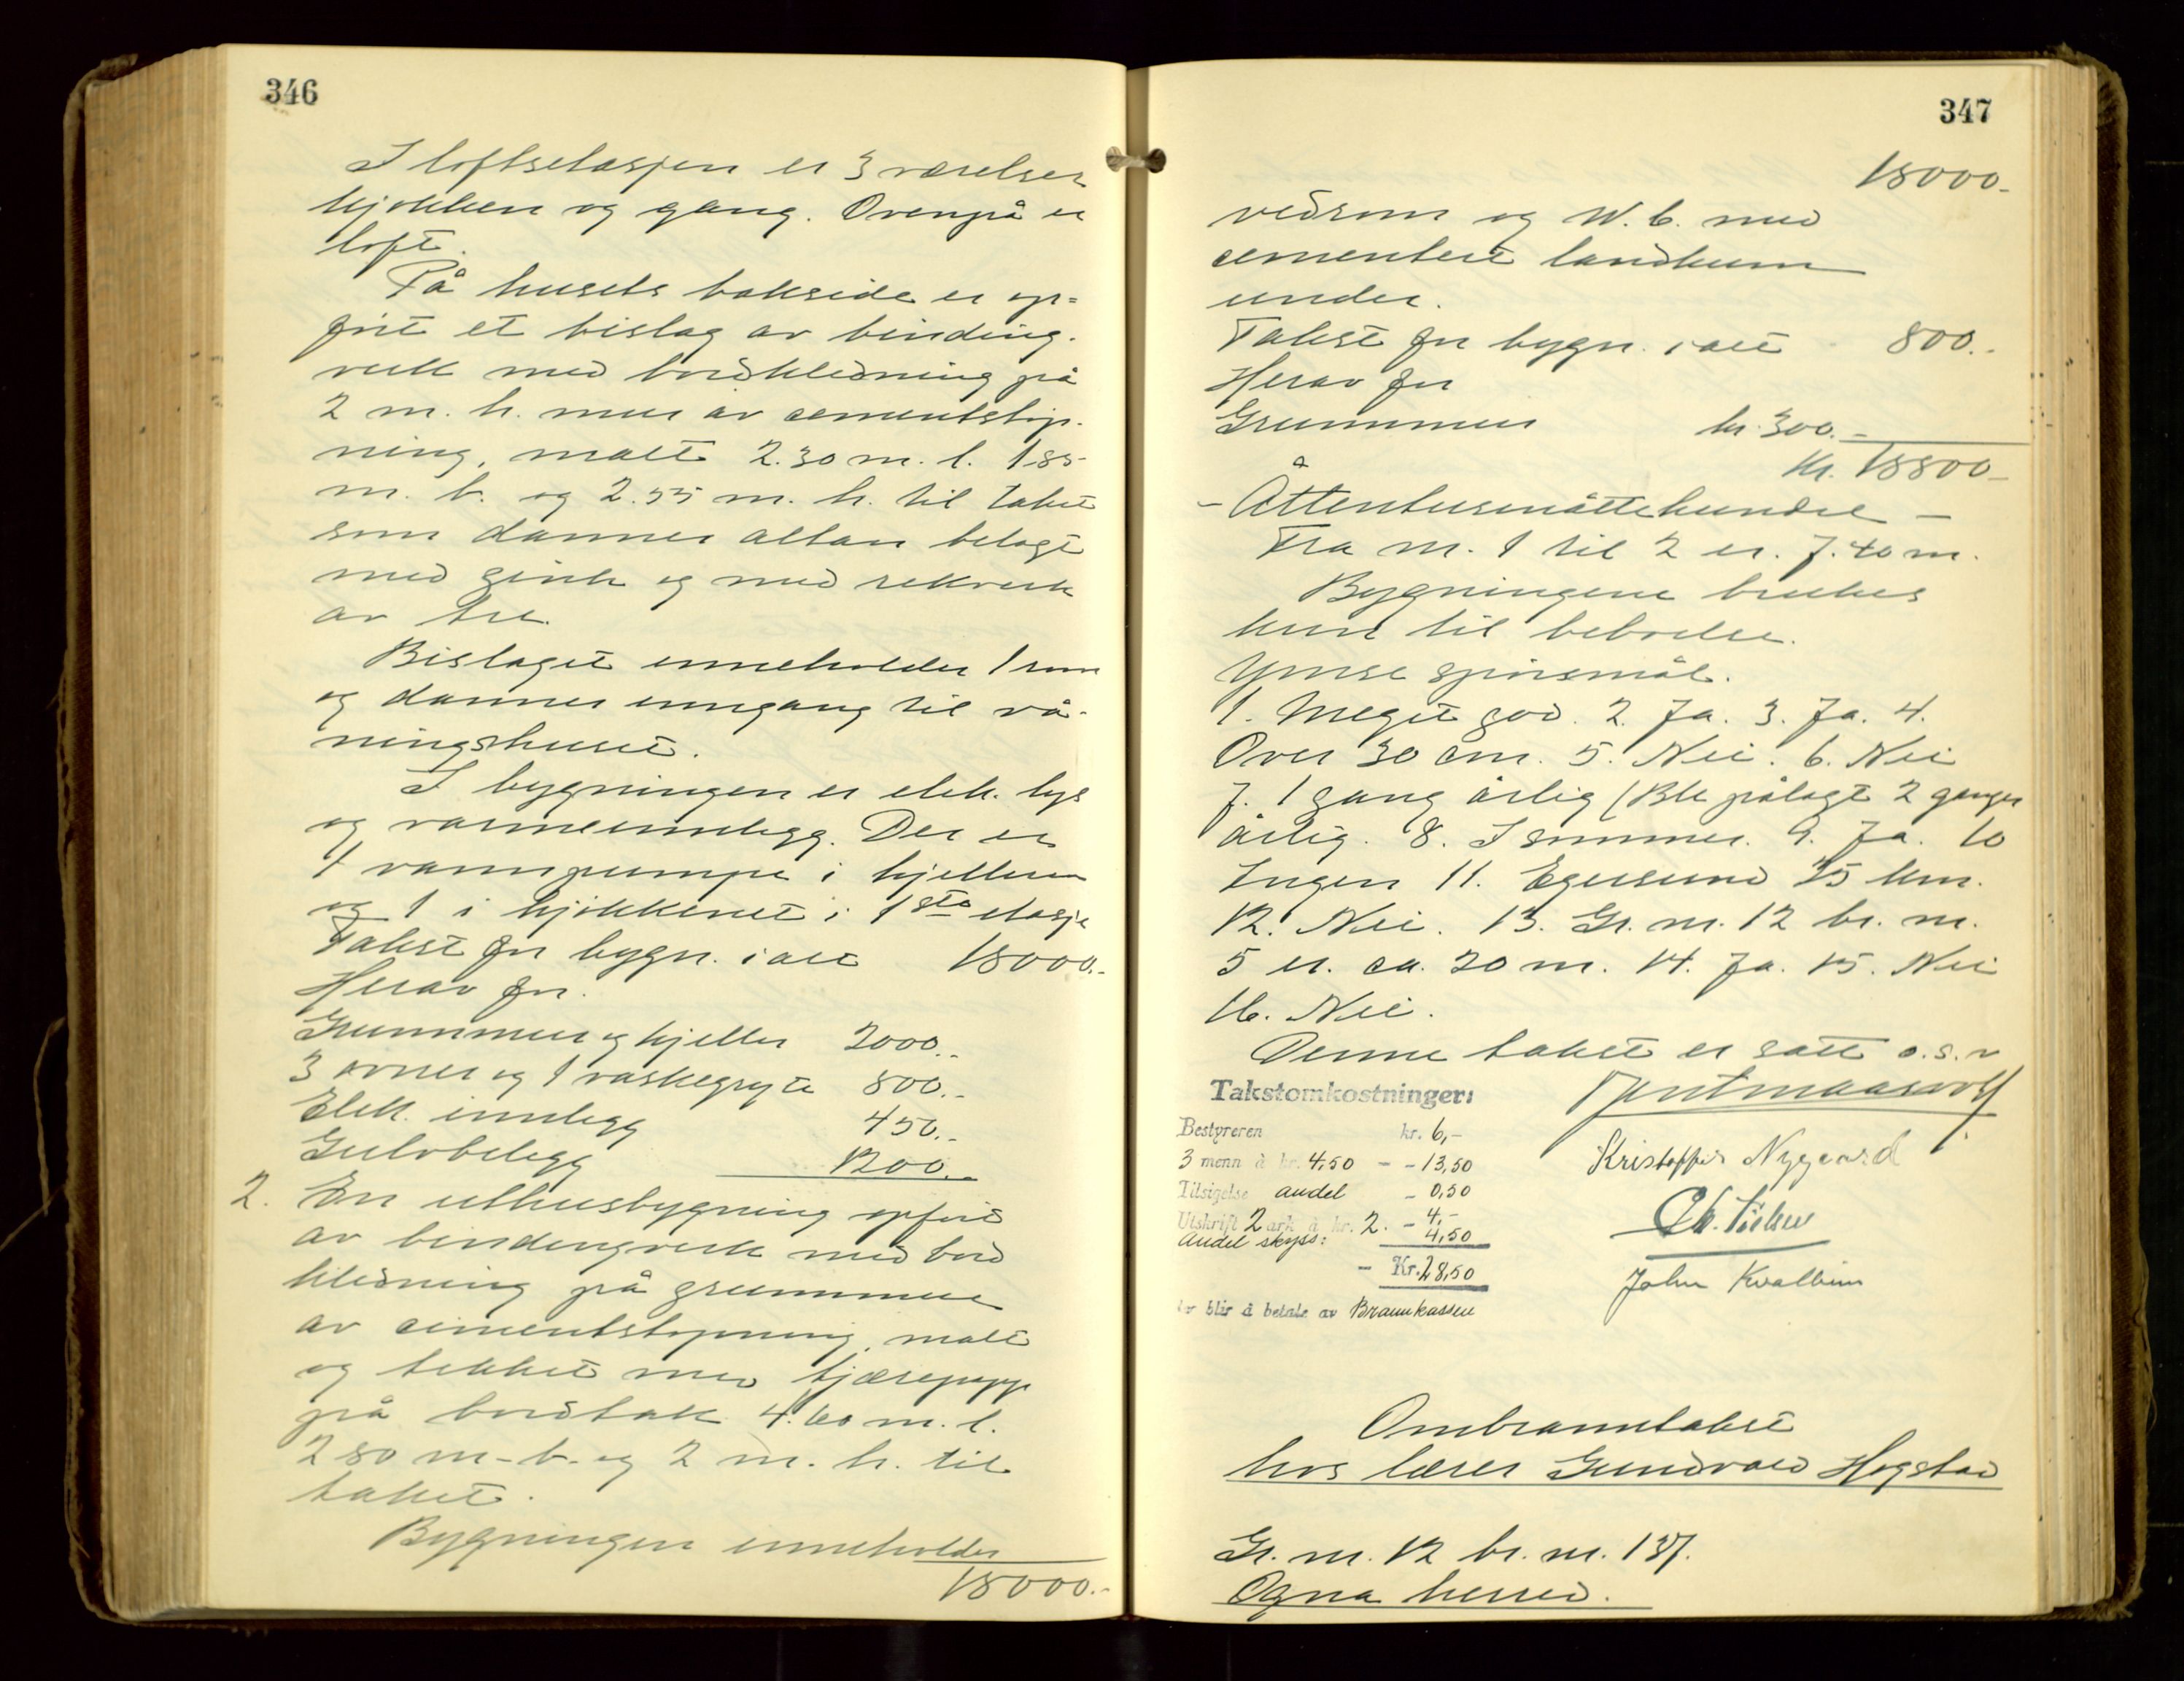 346
I loftsetasjen er 3 værelser
kjøkken og gang. Ovenpå er
loft.
På husets bakside er op=
ført et bislag av binding-
verk med bordkledning på
2 m. h. mur av cementstøp-
ning, malt 2.30 m. l. 1.85
m. b. og 2.55 m. h. til taket
som danner altan belagt
med zink og med rekverk
av tre.
Bislaget inneholder 1 rum
og danner inngang til vå-
ningshuset.
I bygningen er elek. lys
og varmeinnlegg. Der er
1 vannpumpe i kjelleren
og 1 i kjøkkenet i 1ste etasje
Takst for bygn. i alt 18000.-
Herav for.
Grunnmur og kjeller 2000.-
3 ovner og 1 vaskegryte 800.-
Elek. innlegg 450.-
Gulvbelegg 1200.-
2. En uthusbygning opført
av bindingverk med bord
kledning på grunnmur
av cementstøpning, malt
og tekket med tjærepapp
på bordtak 4.60 m. l.
2 80 m. b. og 2 m. h. til
taket.
Bygningen inneholder
18000.-
347
18000.-
vedrom og W. C. med
cementert landkum
under.
Takst for bygn. i alt 800.-
Herav for
Grunnmur kr. 300.-
Kr. 18800.-
- Åttentusenåttehundre -
Fra nr. 1 til 2 er. 7.40 m.
Bygningene brukes
kun til beboelse.
Ymse spørsmål.
1. Meget god. 2. Ja. 3. Ja. 4.
Over 30 cm. 5. Nei. 6. Nei
7. 1 gang årlig (Ble pålagt 2 ganger
årlig. 8. I sommer. 9. Ja. 10
Ingen 11. Egersund 25 km.
12. Nei. 13. Gr. nr. 12 br. nr.
5 er. ca. 20 m. 14. Ja. 15. Nei
16. Nei.
Denne takst er satt o.s.v
Takstomkostninger:
Bestyreren kr. 6,-
3 menn à kr. 4,50 - - 13,50
Tilsigelse andel - 0,50
Utskrift 2 ark à kr. 2. - 4,-
andel skyss: 4,50
- Kr. 28,50
som blir å betale av Brannkassen
Kristoffer Nygaard
John Kvalbein
Ombranntakst
hos lærer Gundvald Høgstad
Gr. nr. 12 br. nr. 137.
Ogna herred.